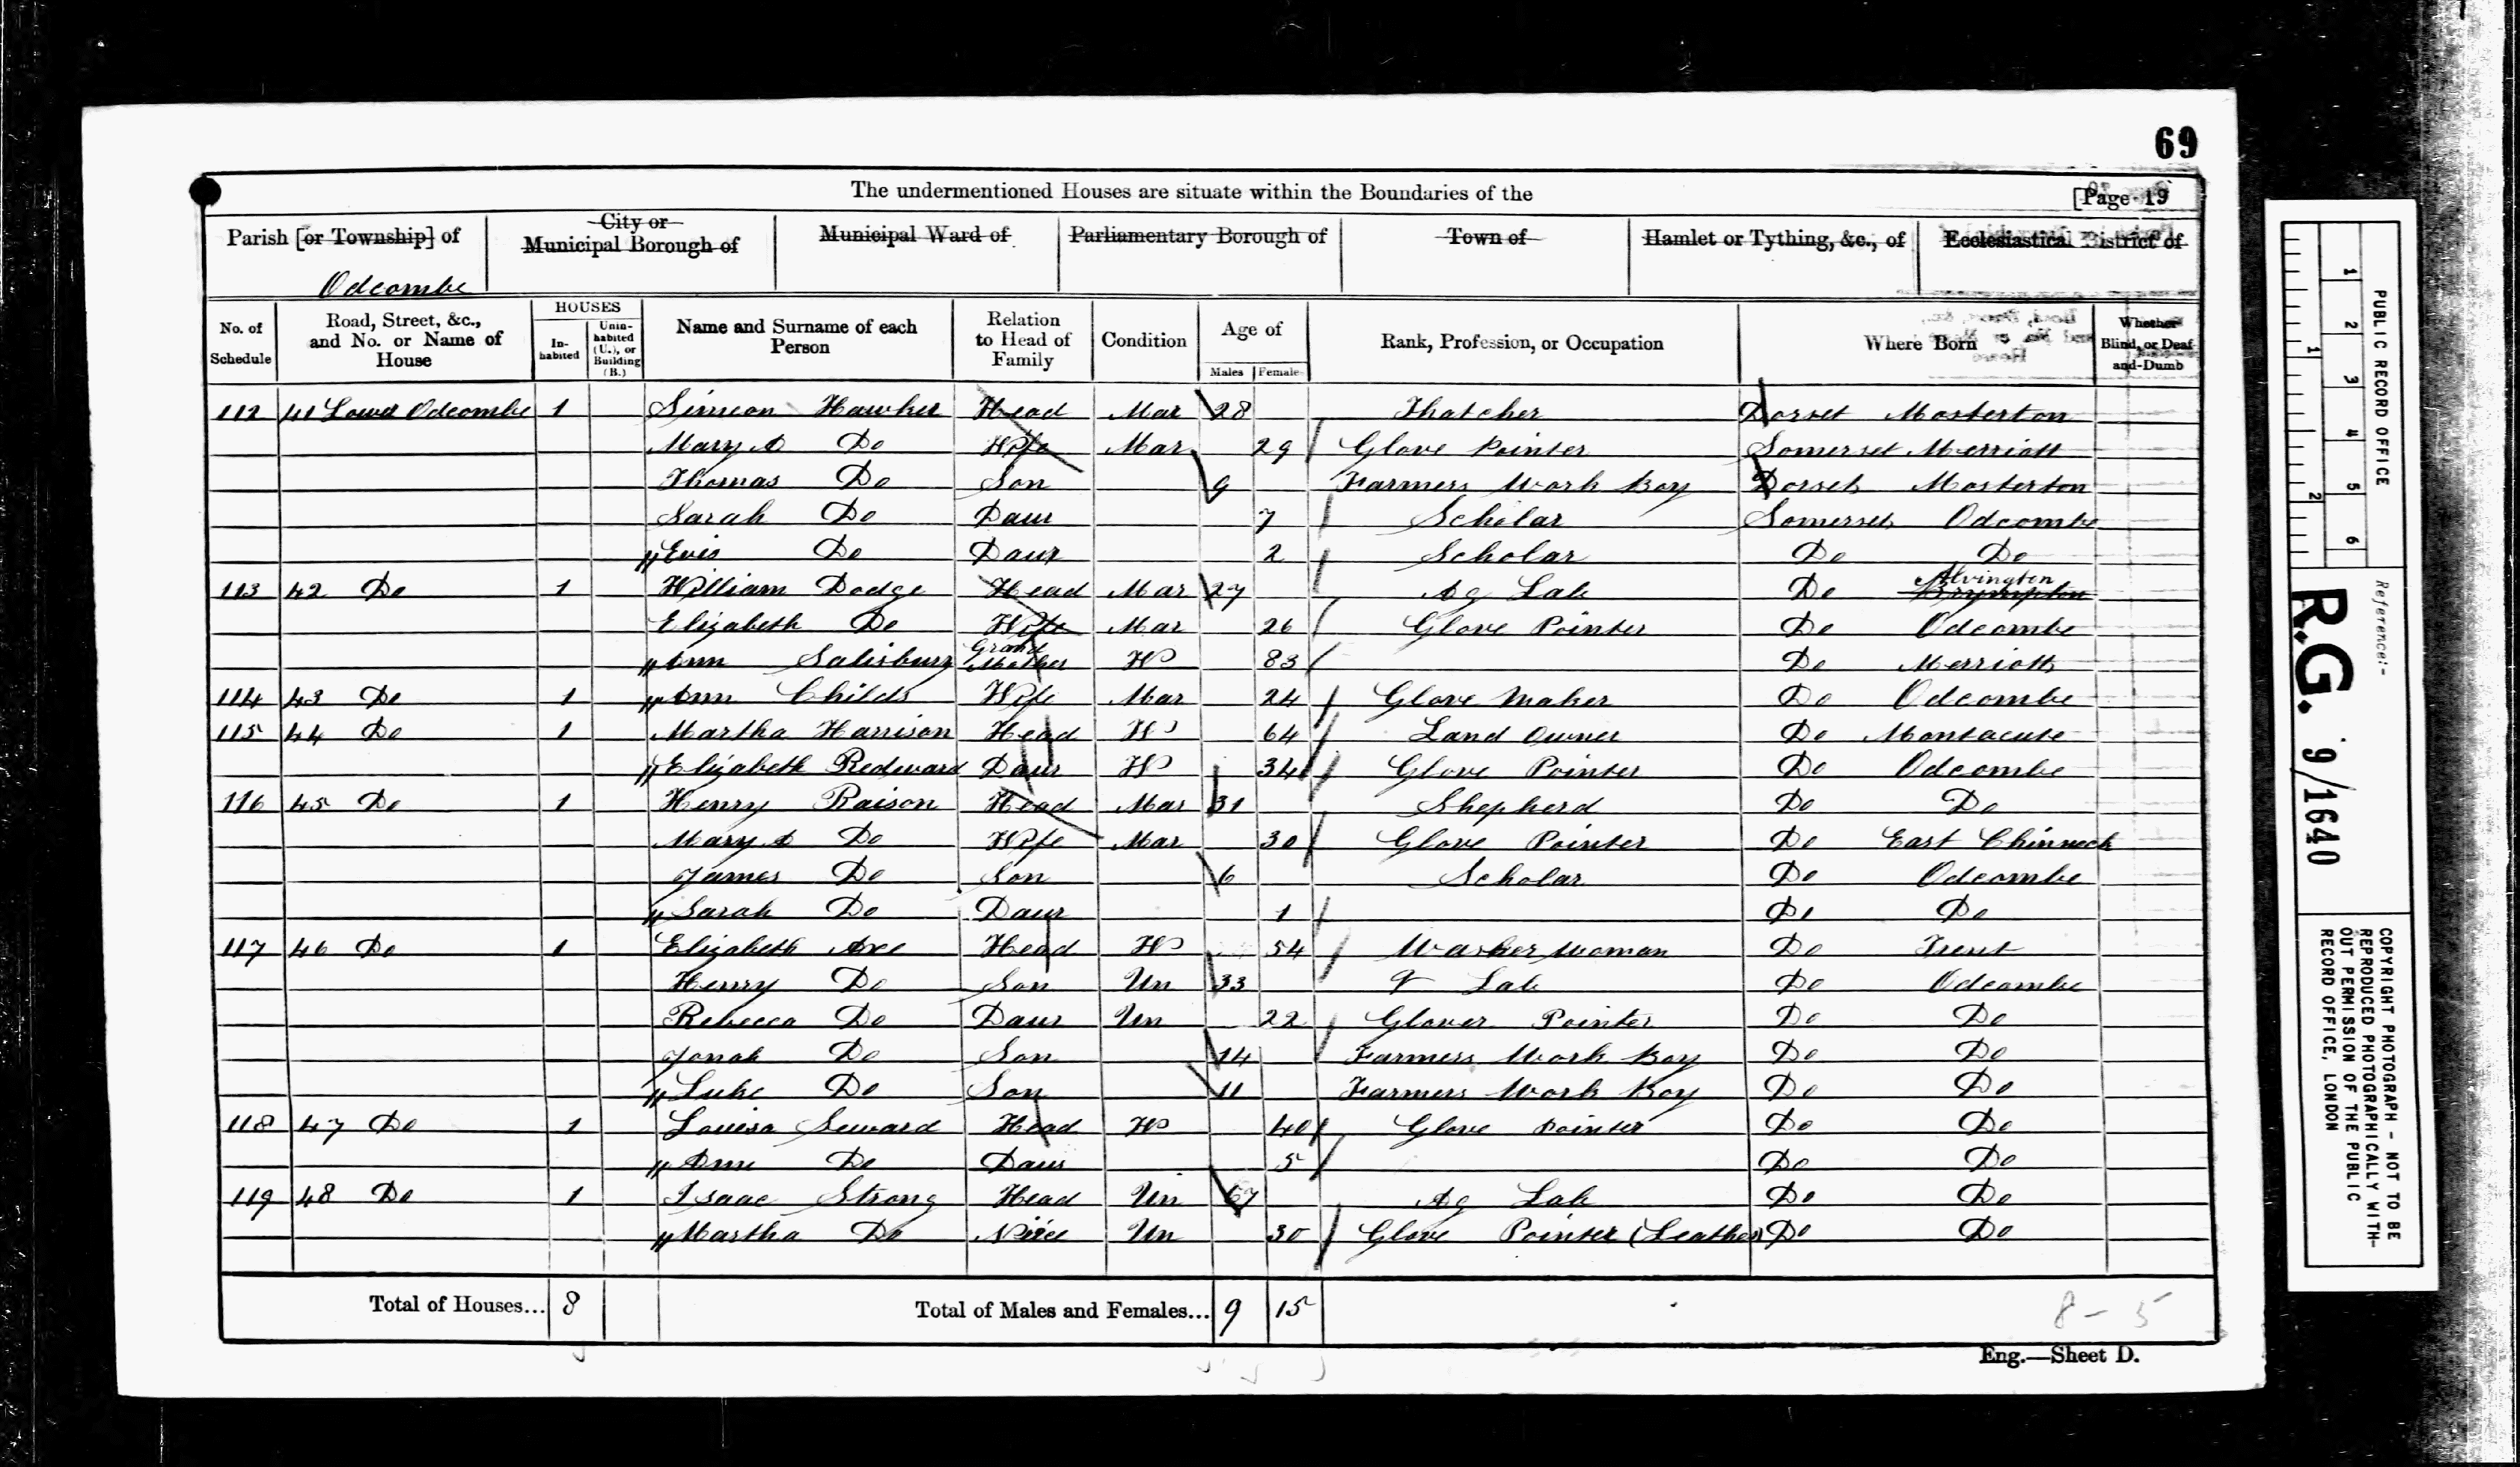 69
The undermentioned Houses are situate within the Boundaries of the [Page 19
Parish [or Township] of City or Municipal Borough of Municipal Ward of Parliamentary Borough of Town of Hamlet or Tything, &c., of Ecclesiastical District of
Odcombe
No. of Schedule Road, Street, &c., and No. or Name of House HOUSES In-habited Unin-habited (U.), or Building (B.) Name and Surname of each Person Relation to Head of Family Condition Age of Males Females Rank, Profession, or Occupation Where Born Whether Blind, or Deaf-and-Dumb
112 41 Lower Odcombe 1 Simeon Hawker Head Mar 28 Thatcher Dorset Mosterton
Mary A Do Wife Mar 29 Glove Pointer Somerset Merriott
Thomas Do Son 9 Farmers Work Boy Dorset Mosterton
Sarah Do Daur 7 Scholar Somerset Odcombe
Do Daur 2 Scholar Do Do
113 42 Do 1 William Dodge Head Mar 27 Ag Lab Do Alvington Brympton
Elizabeth Do Wife Mar 26 Glove Pointer Do Odcombe
Ann Salisbury Grand Mother W 83 Do Merriott
114 43 Do 1 Ann Childs Wife Mar 24 Glove Maker Do Odcombe
115 44 Do 1 Martha Harrison Head W 64 Land Owner Do Montacute
Elizabeth Redward Daur W 34 Glove Pointer Do Odcombe
116 45 Do 1 Henry Raison Head Mar 31 Shepherd Do Do
Mary A Do Wife Mar 30 Glove Pointer Do East Chinnock
James Do Son 6 Scholar Do Odcombe
Sarah Do Daur 1 Do Do
117 46 Do 1 Elizabeth Axe Head W 54 Washer Woman Do Trent
Henry Do Son Un 33 Lab Do Odcombe
Rebecca Do Daur Un 22 Glover Pointer Do Do
Jonah Do Son 14 Farmers Work Boy Do Do
Luke Do Son 11 Farmers Work Boy Do Do
118 47 Do 1 Louisa Seward Head W 40 Glove Pointer Do Do
Do Daur 5 Do Do
119 48 Do 1 Isaac Strong Head Un 67 Ag Lab Do Do
Martha Do Niece Un 30 Glove Pointer (Leather) Do Do
Total of Houses... 8 Total of Males and Females... 9 15 8 - 5
Eng.—Sheet D.
PUBLIC RECORD OFFICE
1 2 3 4 5 6
1 2
Reference:-
R.G. 9/1640
COPYRIGHT PHOTOGRAPH - NOT TO BE
REPRODUCED PHOTOGRAPHICALLY WITH-
OUT PERMISSION OF THE PUBLIC
RECORD OFFICE, LONDON